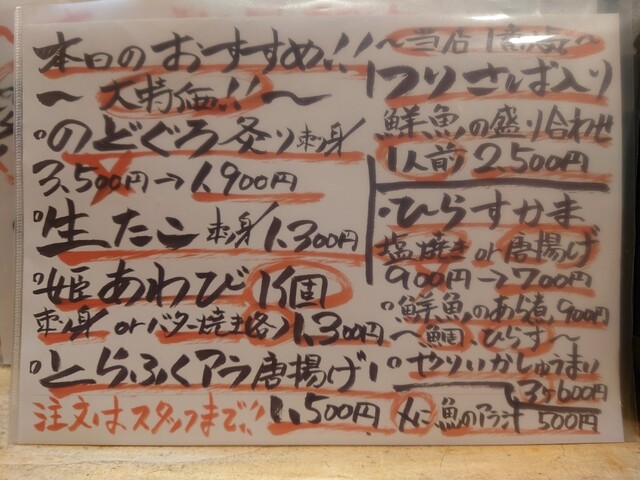 本日のおすすめ!!
〜大特価!!〜
のどぐろ炙り刺身
3,500円→1,900円
生たこ刺身1,300円
姫あわび1個
刺身orバター焼き各1,300円
とらふくアラ唐揚げ
1,500円
注文はスタッフまで!!
〜当店1番人気〜
つりさば入り
鮮魚の盛り合わせ
1人前2,500円
・ひらすかま
塩焼きor唐揚げ
900円→700円
鮮魚のあら煮900円
〜鯛、ひらす〜
やりいかしゅうまい
3ヶ600円
〆に魚のアラ汁
500円